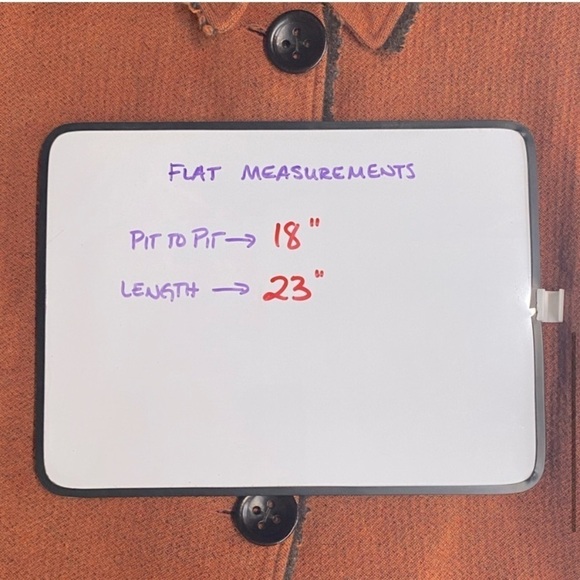 FLAT MEASUREMENTS
PIT TO PIT → 18"
LENGTH → 23"